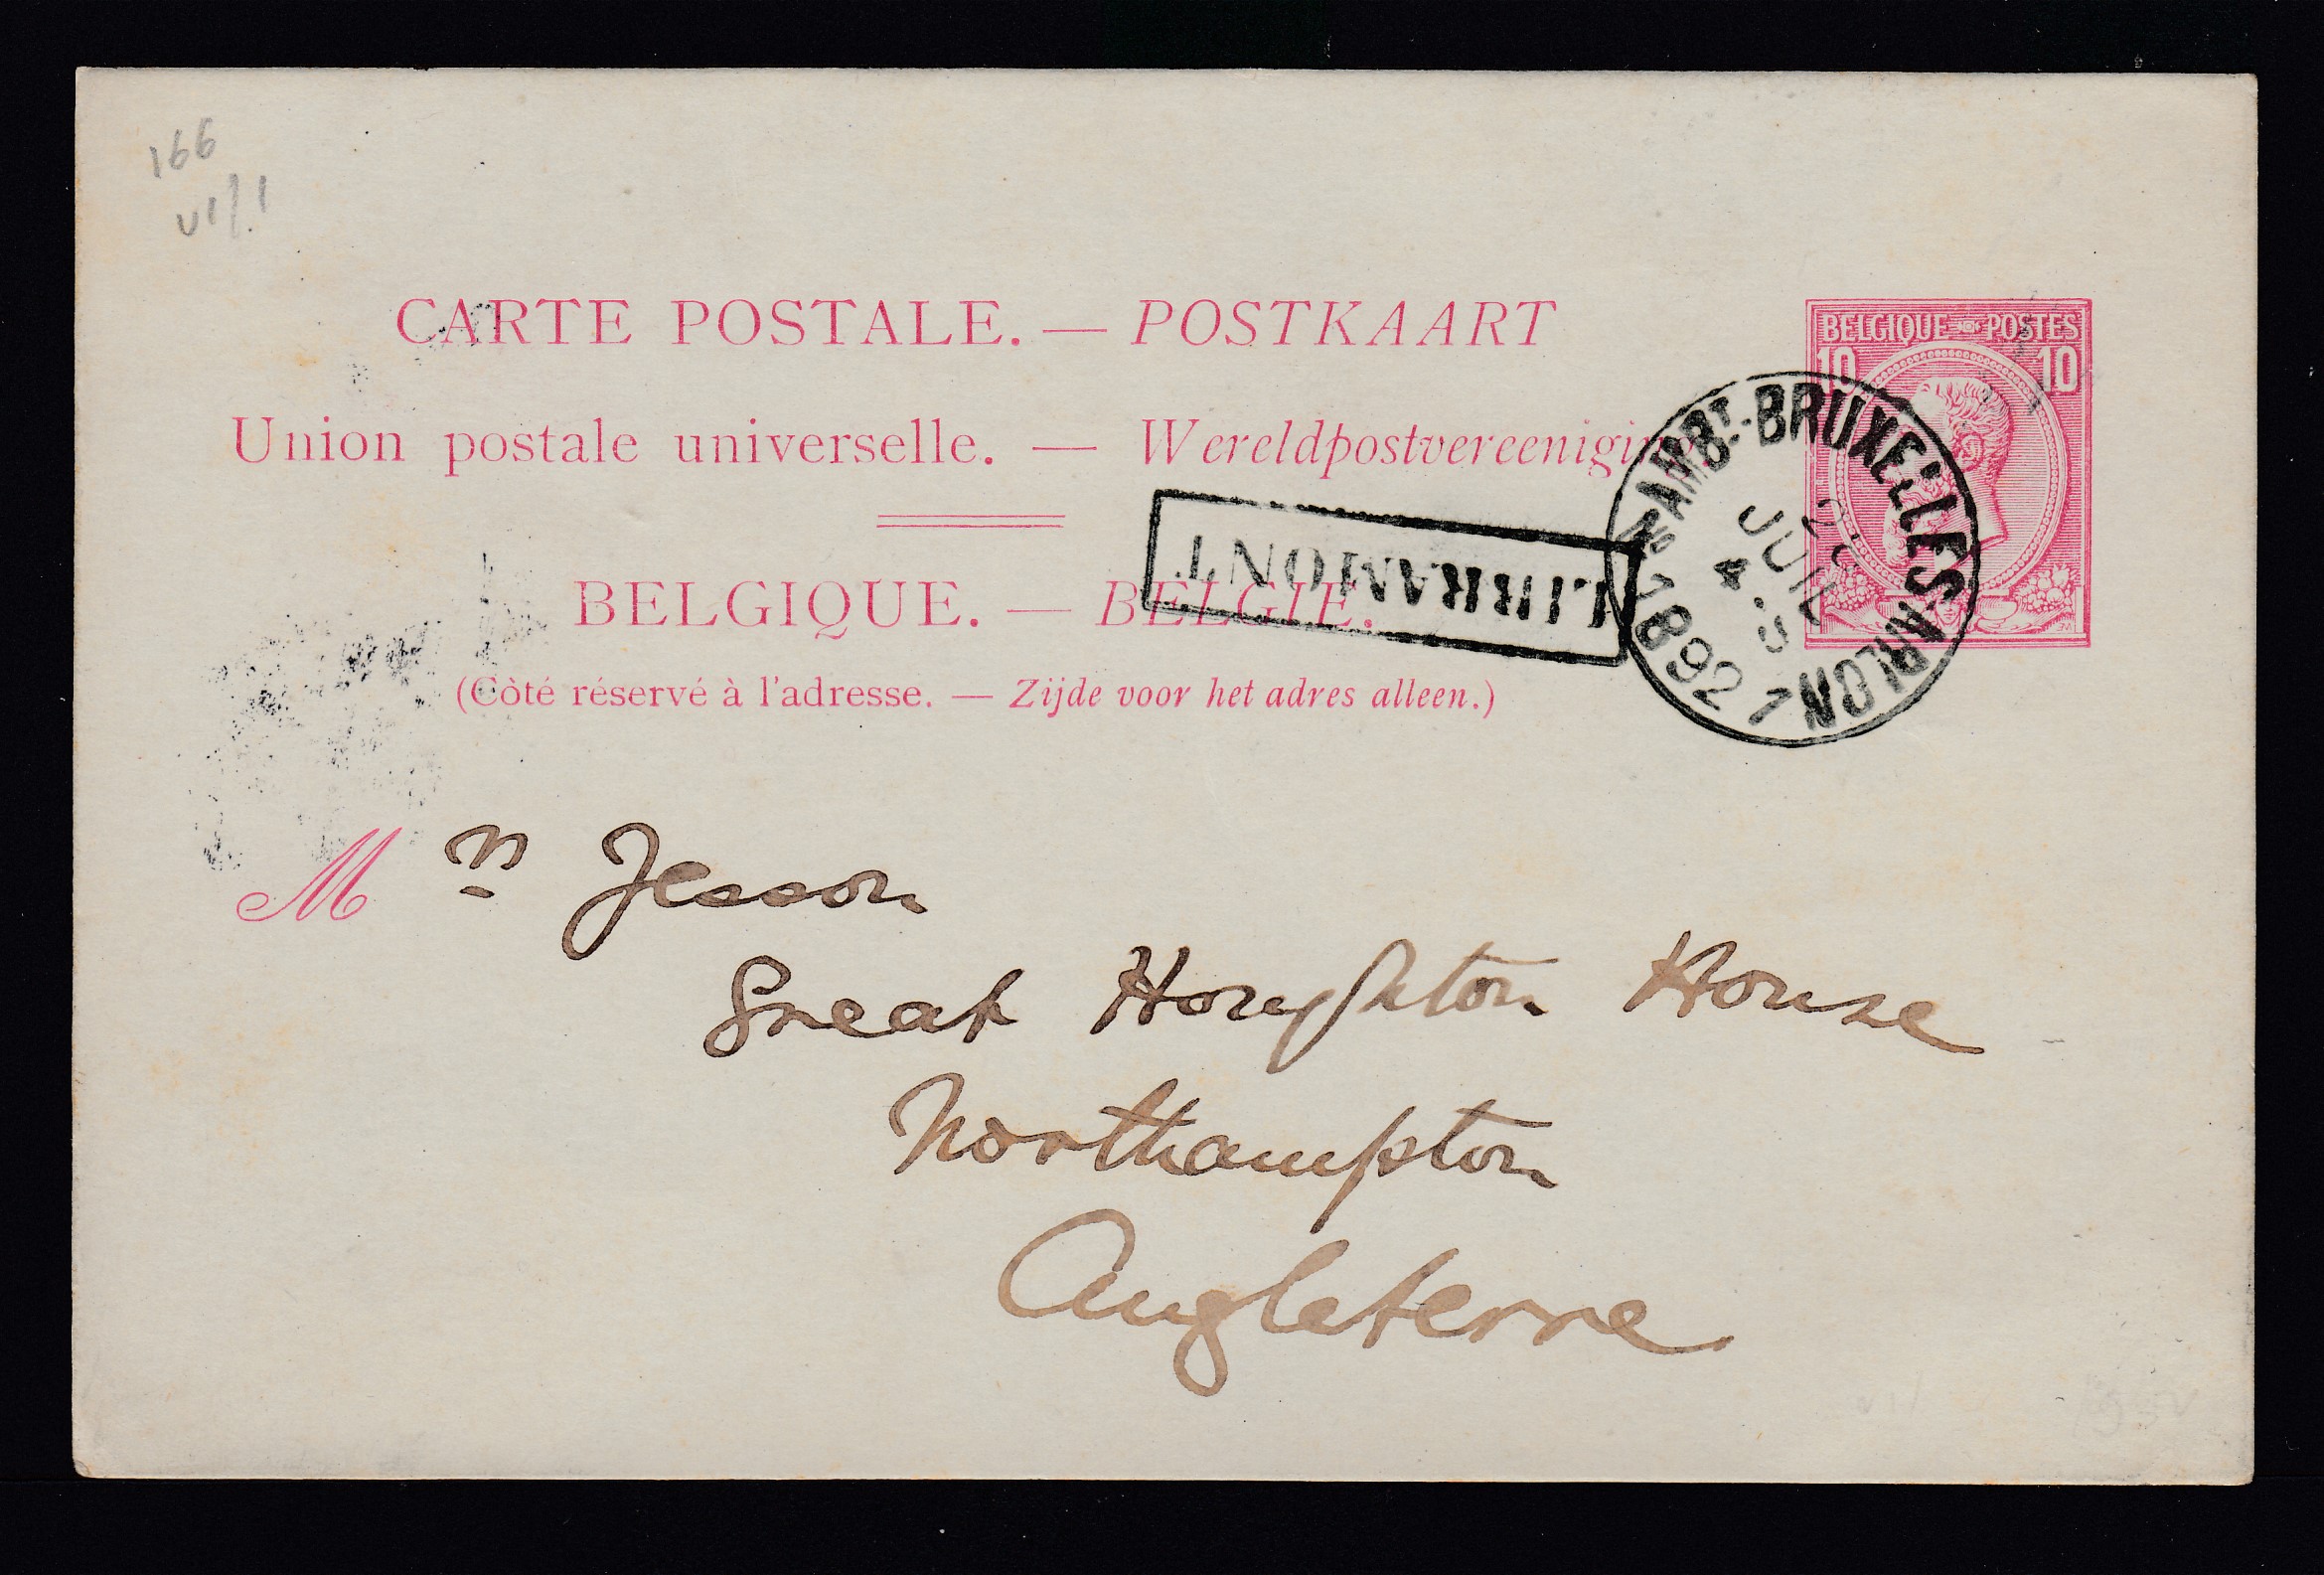 166
CARTE POSTALE. — POSTKAART
BELGIQUE POSTES
10 10
Union postale universelle. — Wereldpostvereeniging.
AMBT.-BRUXELLES-ARLON 1
JUIL
4
No 1892
LIBRAMONT
BELGIQUE. — BELGIE.
(Côté réservé à l'adresse. — Zijde voor het adres alleen.)
Mr Jesson
Great Houghton House
Northampton
Angleterre